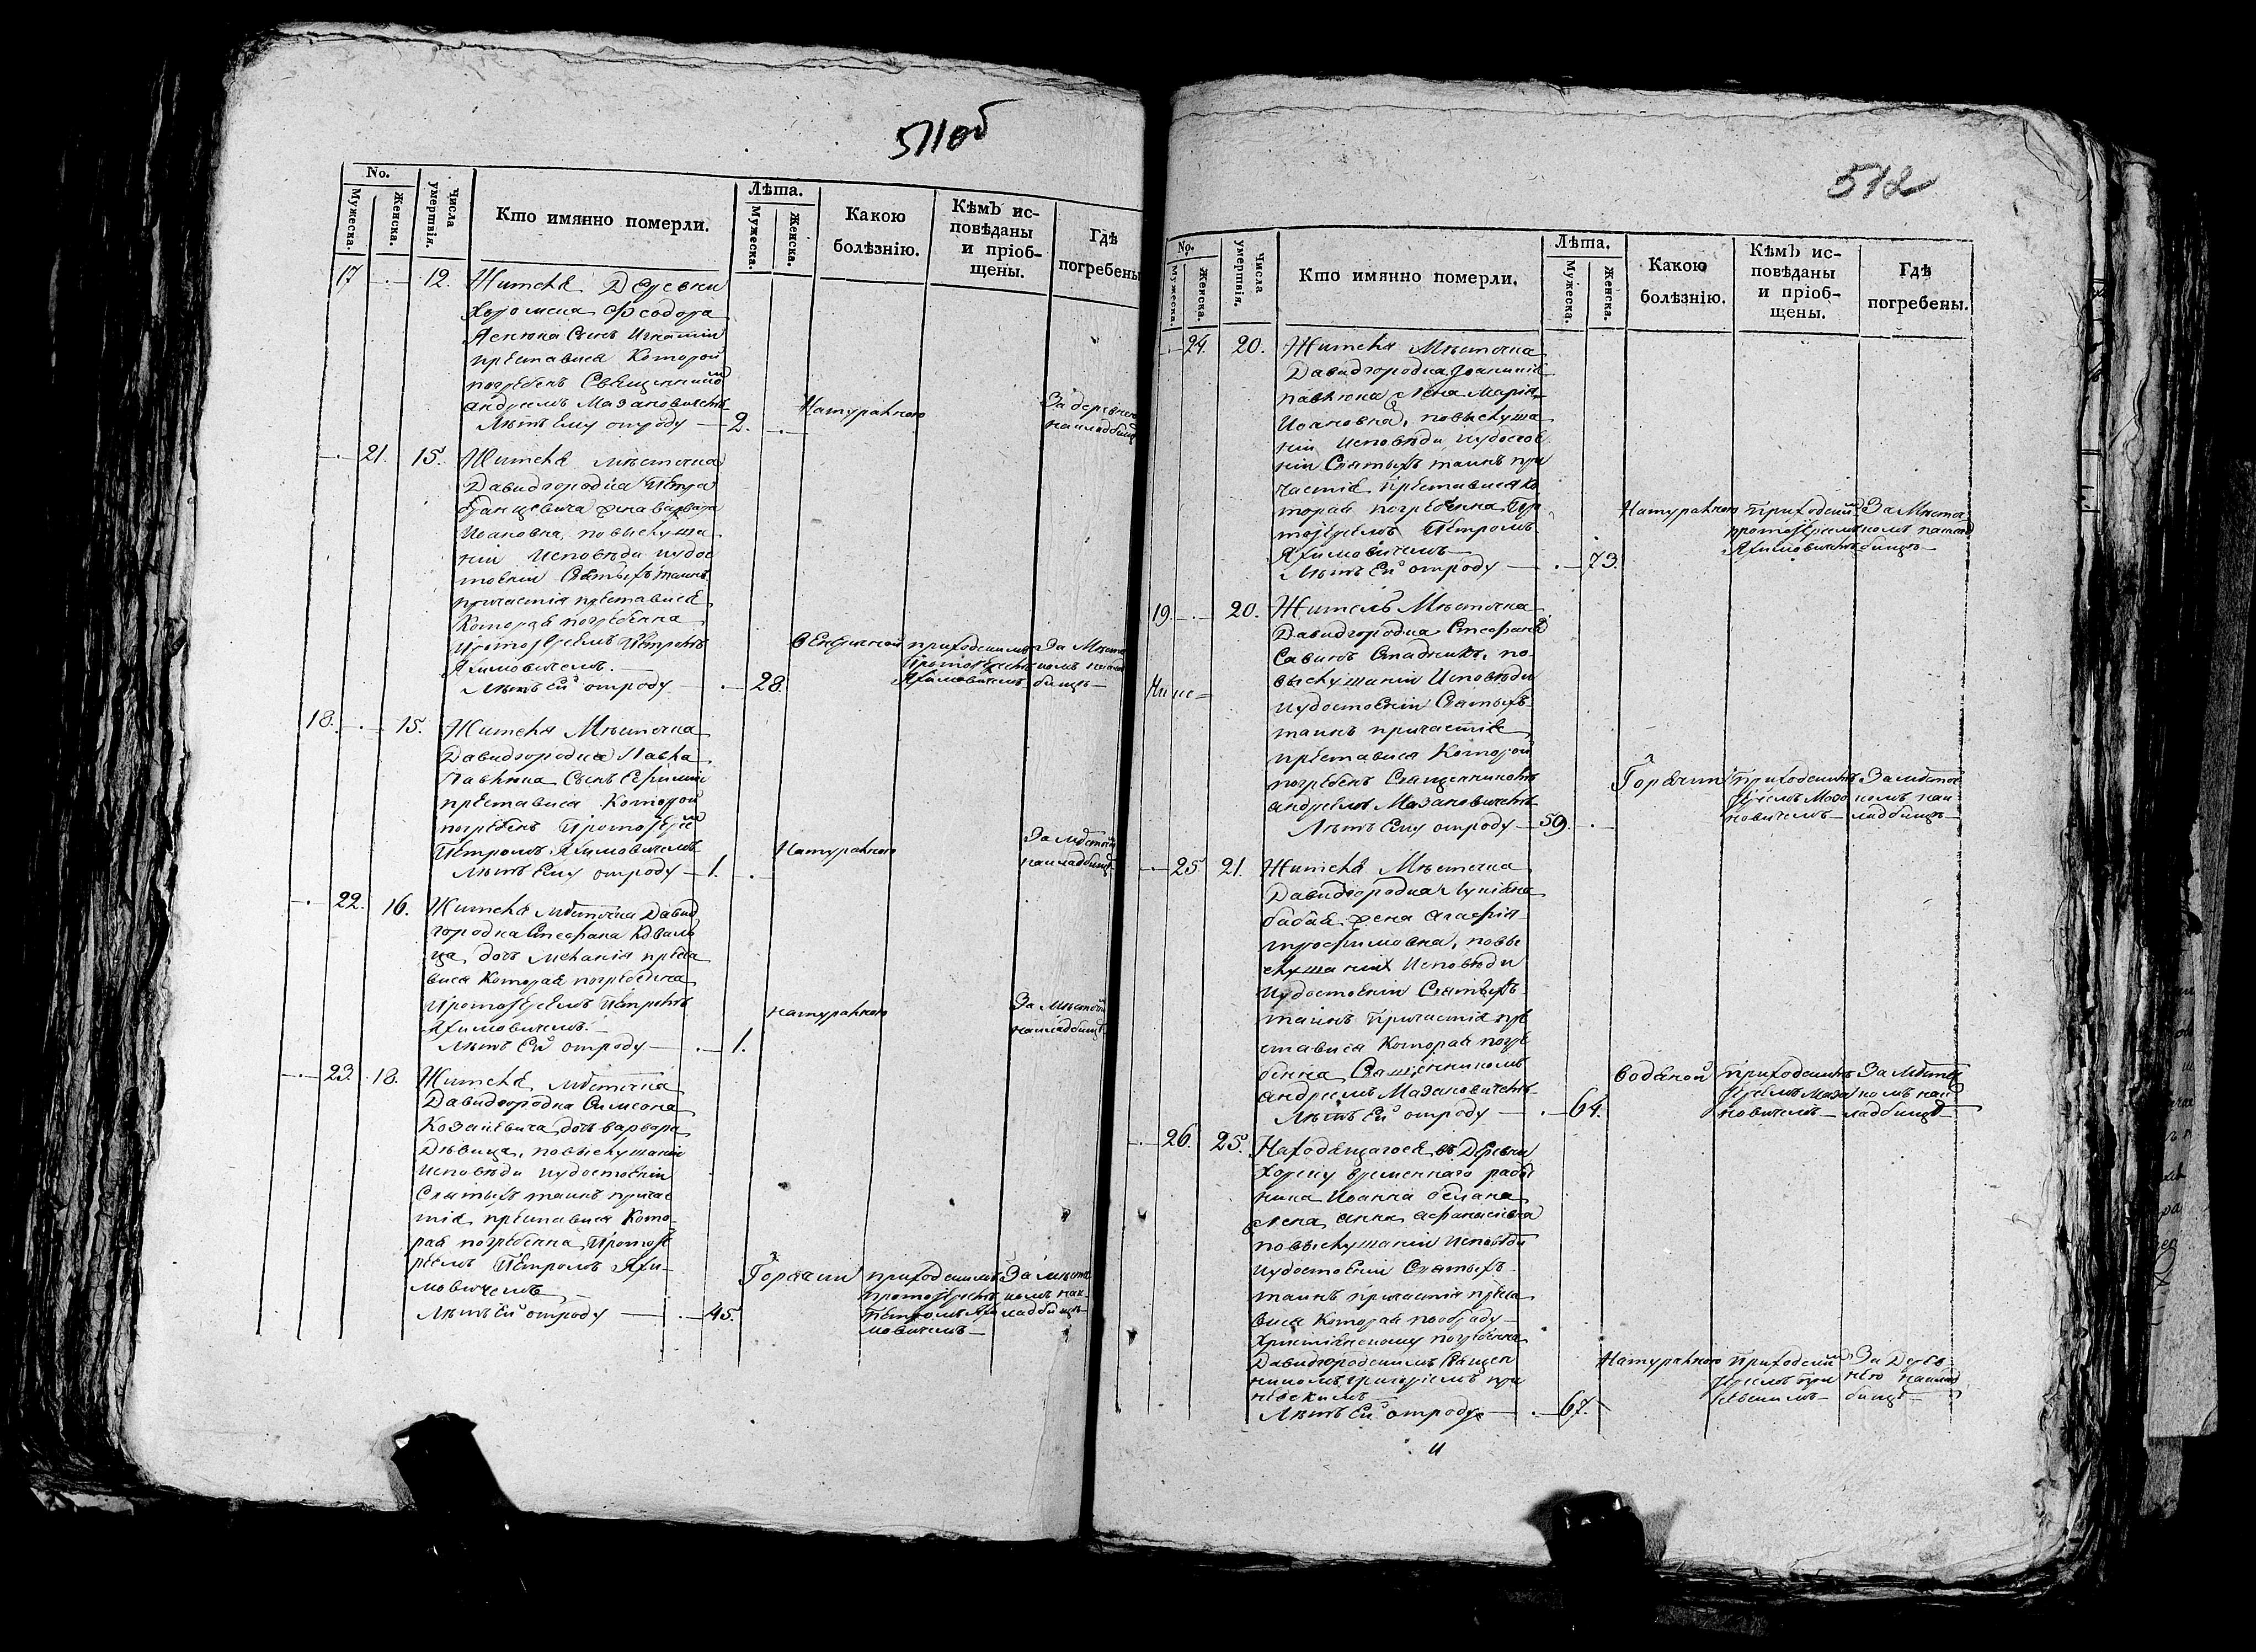 511об
No.
Мужеска.
Женска.
Числа умертвія.
Кто имянно померли.
Лѣта.
Мужеска.
Женска.
Какою болѣзнію.
Кѣмъ исповѣданы и пріобщены.
Гдѣ погребены
17 12. Жителя Деревни
Хоромска Феодора
сынъ Игнатій
преставися Которой
погребенъ Священникомъ
Андреемъ Мазановичемъ
Лѣтъ Ему отроду — 2.
Натурально
За деревнею
на кладбищѣ
21. 15. Жителя мѣстечка
Давидгородка Петра
жена Варвара
Иоановна, по выслуша
ніи Исповѣди и удос
тоеніи Святыхъ таинъ
причастія преставися
Которая погребенна
Протоіереемъ Петромъ
Яхимовичемъ. —
Лѣтъ Ей отроду — 28.
приходскимъ
Протоіереемъ
Яхимовичемъ
За Мѣсте
комъ на клад
бищѣ —
18. 15. Жителя Мѣстечка
Давидгородка Павла
Павлюка Сынъ Ефимій
преставися Которой
погребенъ Протоіерее
Петромъ Яхимовичемъ
Лѣтъ Ему отроду — 1.
Натурально
За мѣстечк
на кладбищѣ
22. 16. Жителя мѣстечка Давид
городка Стефана Коваль
ца дочь Меланія преста
вися Которая погребенна
Протоіереемъ Петромъ
Яхимовичемъ. —
Лѣтъ Ей отроду — 1.
натурально
За Мѣстечк
на кладбищѣ
23. 18. Жителя мѣстечка
Давидгородка Симеона
дочь Варвара
Дѣвица, по выслушаніи
Исповѣди и удостоеніи
Святыхъ таинъ причас
тія преставися Кото-
рая погребенна Протоіе
реемъ Петромъ Яхи-
мовичемъ —
Лѣтъ Ей отроду — 45.
Горячки
приходскимъ
Протоіереемъ
Петромъ Яхи
мовичемъ —
За мѣсте
комъ на к
ладбищѣ
512
No.
Мужеска.
Женска.
Числа умертвія.
Кто имянно померли.
Лѣта.
Мужеска.
Женска.
Какою болѣзнію.
Кѣмъ исповѣданы и пріобщены.
Гдѣ погребены.
24. 20. Жителя Мѣстечка
Давидгородка
Павлюка жена Марія
Иоановна, по выслуша
ніи исповѣди и удостое
ніи Святыхъ таинъ при
частія преставися Ко
торая погребенна Пр
тоіереемъ Петромъ
Яхимовичемъ —
Лѣтъ Ей отроду — 73.
Натурально
Приходским
протоіереемъ
Яхимовичемъ
За Мѣсте
комъ на клад
бищѣ —
19. 20. Житель Мѣстечка
Давидгородка Стефанъ
Савинъ по
выслушаніи Исповѣди
и удостоеніи Святыхъ
таинъ причастія
преставися Которой
погребенъ Священникомъ
Андреемъ Мазановичемъ
Лѣтъ Ему отроду — 59.
Горячки
Приходскимъ
Іереемъ Маза
новичемъ —
За мѣсте
комъ на к
ладбищѣ —
25 21. Жителя Мѣстечка
Давидгородка Лукіана
жена Агафія
Трофимовна, по вы
слушаніи Исповѣди
и удостоеніи Святыхъ
таинъ Причастія пре
ставися Которая погре
бенна Священникомъ
Андреемъ Мазановичемъ
Лѣтъ Ей отроду — 64.
водяной
приходскимъ
Іереемъ Маза
новичемъ —
За Мѣсте
комъ на к
ладбищѣ
26. 25. Находящагося въ Деревни
Хорску временнаго работ
ника Иоанна
жена Анна Афанасіевна
по выслушаніи Исповѣди
и удостоеніи Святыхъ
таинъ причастія преста
вися Которая по обряду
Христіянскому погребенна
Давидгородскимъ Священ
никомъ Григоріемъ
Лѣтъ Ей отроду — 67.
Натурально
Приходским
Іереемъ
За Дерев-
нею на клад
бищѣ